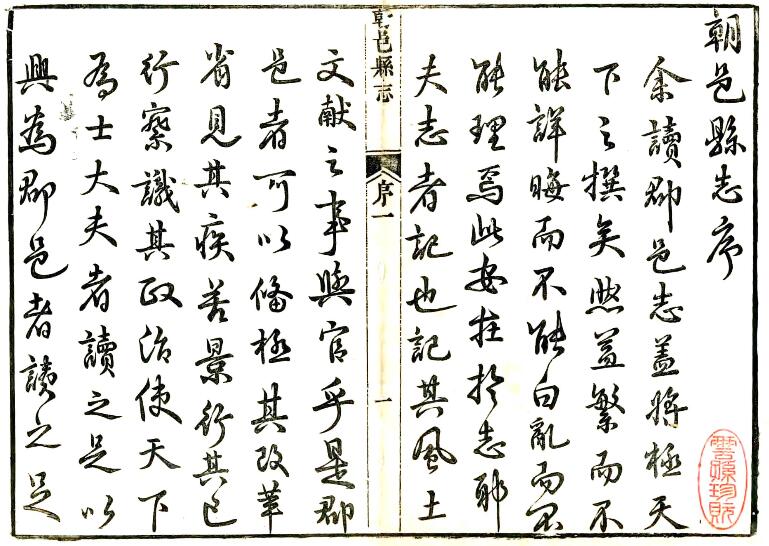 朝邑縣志序
余讀郡邑志蓋將極天
下之撰矣然益繁而不
能詳晦而不能白亂而不
能理焉此安在於志耶
夫志者記也記其風土
朝邑縣志
序一
一
文献之事與官乎是郡
邑者可以備極其改革
省見其疾苦景行其已
行察識其政治使天下
為士大夫者讀之足以
興為郡邑者讀之足